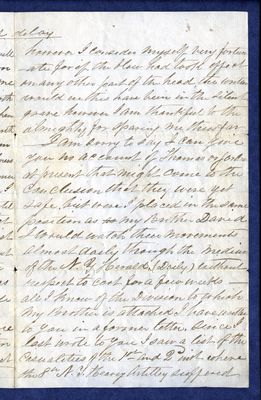 delay
however I consider myself very fortun-
ate for if the blow had took effect
on any other part of the head, the writer
would in this have been in the silent
grave however I am thankful to the
almighty for sparing me thus far —
I am sorry to say I can give
you no account of Thomas
at present that might come to the
conclusion that they were yet
safe, but were I placed in the same
position as my Brother David
I could watch their movements
almost daily through the medium
of the N. Y. Herald, (Daily) without
respect to cost for a few weeks —
all I know of the Division to which
my Brother is attached I have written
to you in a former letter. Since I
last wrote to you I saw a list of the
Casualities of the 1st and 2d inst. where
the 8th N. Y. Heavy Artilley suffered